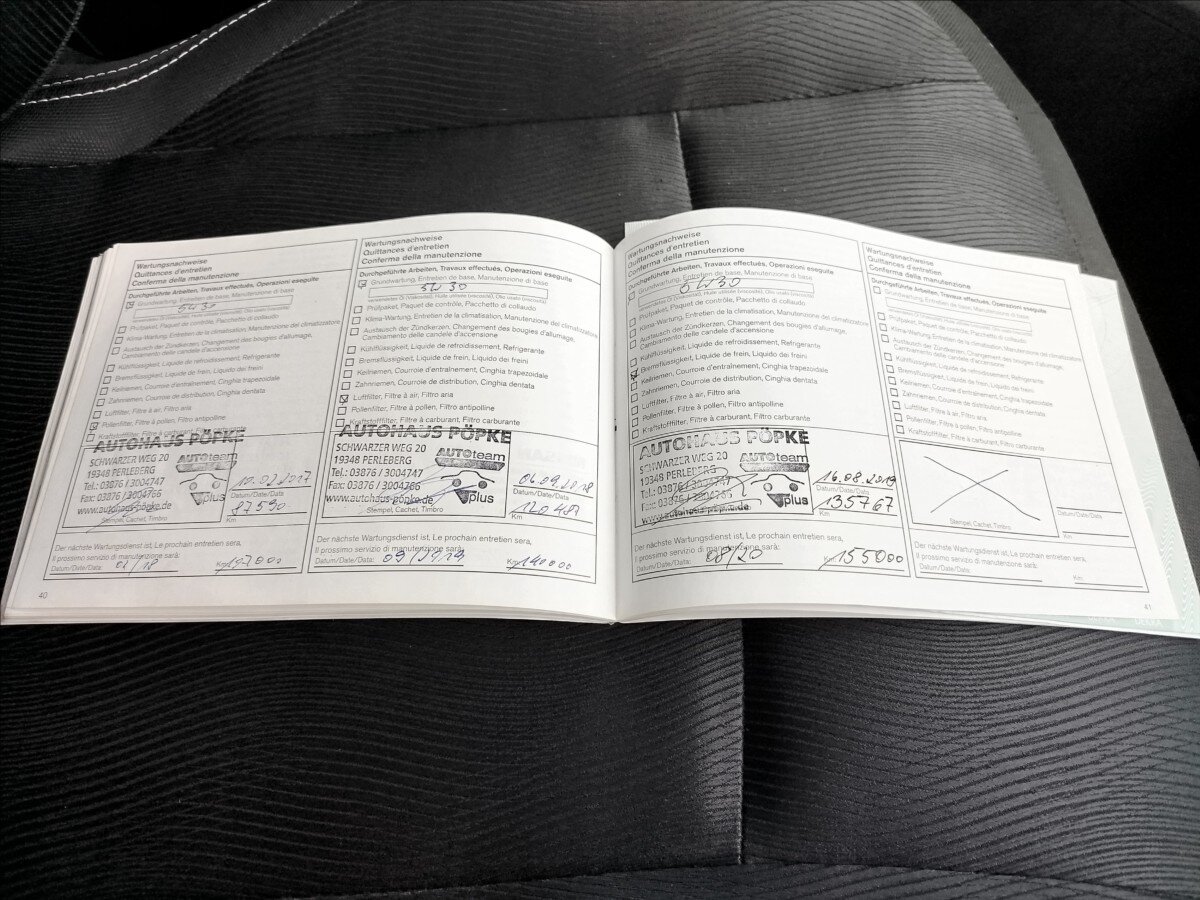 Wartungsnachweise
Quittances d'entretien
Conferma della manutenzione
Durchgeführte Arbeiten, Travaux effectués, Operazioni eseguite
Grundwartung, Entretien de base, Manutenzione di base
5W30
Prüfpaket, Paquet de contrôle, Pacchetto di collaudo
Klima-Wartung, Entretien de la climatisation, Manutenzione del climatizzatore
Austausch der Zündkerzen, Changement des bougies d'allumage,
Cambiamento delle candele d'accensione
Kühlflüssigkeit, Liquide de refroidissement, Refrigerante
Bremsflüssigkeit, Liquide de frein, Liquido dei freini
Keilriemen, Courroie d'entraînement, Cinghia trapezoidale
Zahnriemen, Courroie de distribution, Cinghia dentata
Luftfilter, Filtre à air, Filtro aria
Pollenfilter, Filtre à pollen, Filtro antipolline
AUTOHAUS PÖPKE
SCHWARZER WEG 20
19348 PERLEBERG
Tel.: 03876 / 3004747
Fax: 03876 / 3004766
www.autohaus-pöpke.de
AUTOteam
plus
Stempel, Cachet, Timbro
Datum/Date/Data
87590
Km
Der nächste Wartungsdienst ist, Le prochain entretien sera,
Il prossimo servizio di manutenzione sarà:
Datum/Date/Data: 01/18
Km:
40
Wartungsnachweise
Quittances d'entretien
Conferma della manutenzione
Durchgeführte Arbeiten, Travaux effectués, Operazioni eseguite
Grundwartung, Entretien de base, Manutenzione di base
5W30
verwendetes Öl (Viskosität), Huile utilisée (viscosité), Olio usato (viscosità)
Prüfpaket, Paquet de contrôle, Pacchetto di collaudo
Klima-Wartung, Entretien de la climatisation, Manutenzione del climatizzatore
Austausch der Zündkerzen, Changement des bougies d'allumage,
Cambiamento delle candele d'accensione
Kühlflüssigkeit, Liquide de refroidissement, Refrigerante
Bremsflüssigkeit, Liquide de frein, Liquido dei freini
Keilriemen, Courroie d'entraînement, Cinghia trapezoidale
Zahnriemen, Courroie de distribution, Cinghia dentata
Luftfilter, Filtre à air, Filtro aria
Pollenfilter, Filtre à pollen, Filtro antipolline
Kraftstofffilter, Filtre à carburant, Filtro carburante
AUTOHAUS PÖPKE
SCHWARZER WEG 20
19348 PERLEBERG
Tel.: 03876 / 3004747
Fax: 03876 / 3004766
www.autohaus-pöpke.de
AUTOteam
plus
Stempel, Cachet, Timbro
06.09.2018
Datum/Date/Data
Km
Der nächste Wartungsdienst ist, Le prochain entretien sera,
Il prossimo servizio di manutenzione sarà:
Datum/Date/Data: 09/2019
Km: 140000
Wartungsnachweise
Quittances d'entretien
Conferma della manutenzione
Durchgeführte Arbeiten, Travaux effectués, Operazioni eseguite
Grundwartung, Entretien de base, Manutenzione di base
5W30
Prüfpaket, Paquet de contrôle, Pacchetto di collaudo
Klima-Wartung, Entretien de la climatisation, Manutenzione del climatizzatore
Austausch der Zündkerzen, Changement des bougies d'allumage,
Cambiamento delle candele d'accensione
Kühlflüssigkeit, Liquide de refroidissement, Refrigerante
Bremsflüssigkeit, Liquide de frein, Liquido dei freini
Keilriemen, Courroie d'entraînement, Cinghia trapezoidale
Zahnriemen, Courroie de distribution, Cinghia dentata
Luftfilter, Filtre à air, Filtro aria
Pollenfilter, Filtre à pollen, Filtro antipolline
Kraftstofffilter, Filtre à carburant, Filtro carburante
AUTOHAUS PÖPKE
SCHWARZER WEG 20
19348 PERLEBERG
Tel.: 03876 / 3004747
Fax: 03876 / 3004766
www.autohaus-pöpke.de
AUTOteam
plus
Stempel, Cachet, Timbro
16.08.2019
Datum/Date/Data
135767
Km
Der nächste Wartungsdienst ist, Le prochain entretien sera,
Il prossimo servizio di manutenzione sarà:
Datum/Date/Data: 08/20
Km: 155000
Wartungsnachweise
Quittances d'entretien
Conferma della manutenzione
Durchgeführte Arbeiten, Travaux effectués, Operazioni eseguite
Grundwartung, Entretien de base, Manutenzione di base
Prüfpaket, Paquet de contrôle, Pacchetto di collaudo
Klima-Wartung, Entretien de la climatisation, Manutenzione del climatizzatore
Austausch der Zündkerzen, Changement des bougies d'allumage,
Cambiamento delle candele d'accensione
Kühlflüssigkeit, Liquide de refroidissement, Refrigerante
Bremsflüssigkeit, Liquide de frein, Liquido dei freini
Keilriemen, Courroie d'entraînement, Cinghia trapezoidale
Zahnriemen, Courroie de distribution, Cinghia dentata
Luftfilter, Filtre à air, Filtro aria
Pollenfilter, Filtre à pollen, Filtro antipolline
Kraftstofffilter, Filtre à carburant, Filtro carburante
Stempel, Cachet, Timbro
Datum/Date/Data
Km
Der nächste Wartungsdienst ist, Le prochain entretien sera,
Il prossimo servizio di manutenzione sarà:
Datum/Date/Data:
Km:
41